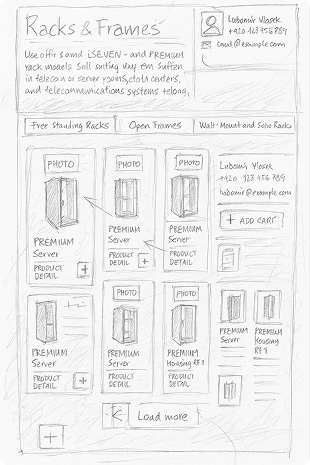 Racks & Frames
Use offr samd iSEVEN - and PREMIUM
rack moaels Soll suiting uay em Suffen
in telecom or server rooms, data centers,
and telecommunications systems telong,
Lubomir Vlasek
+420 123 456 789
@example.com
Frer Standing Racks
Open Frames
Wall-Mount and Soho Racks
PHOTO
PREMIUM
Server
PRODUCT
DETAIL
+
PHOTO
PREMIUM
Server
PRODUCT
DETAIL
+
PHOTO
PREMIUM
Server
PRODUCT
DETAIL
Lubomir Vlosek
+420 123 456 789
lubomir@example.com
+ ADD CART
PREMIUM
Server
PRODUCT
DETAIL
+
PHOTO
PREMIUM
Server
PRODUCT
DETAIL
PHOTO
PREMIUM
Housing RF-1
PRODUCT
DETAIL
PREMIUM
Server
PREMIUM
Housing
RF-1
Load more
+